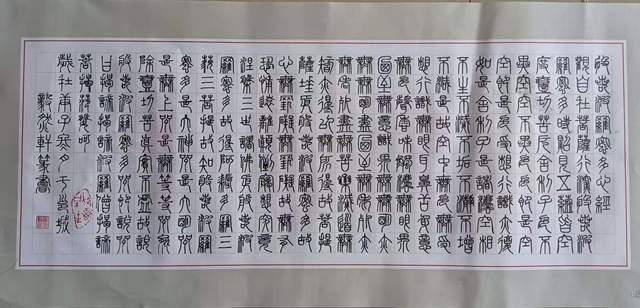 般若波羅密多心經
觀自在菩薩行深般若波
羅密多時照見五蘊皆空
度一切苦厄舍利子色不
異空空不異色色即是空
空即是色受想行識亦復
如是舍利子是諸法空相
不生不滅不垢不淨不增
不減是故空中無色無受
想行識無眼耳鼻舌身意
無色聲香味觸法無眼界
乃至無意識界無無明亦
無無明盡乃至無老死亦
無老死盡無苦集滅道無
智亦無得以無所得故菩提
薩埵依般若波羅密多故
心無罣礙無罣礙故無有
恐怖遠離顛倒夢想究竟
涅槃三世諸佛依般若波
羅密多故得阿耨多羅三
藐三菩提故知般若波羅
密多是大神咒是大明咒
是無上咒是無等等咒能
除一切苦真實不虛故說
般若波羅密多咒即說咒
曰揭諦揭諦波羅揭諦波羅僧揭諦
菩提薩婆訶
歲在丙子冬月
毅然軒篆書